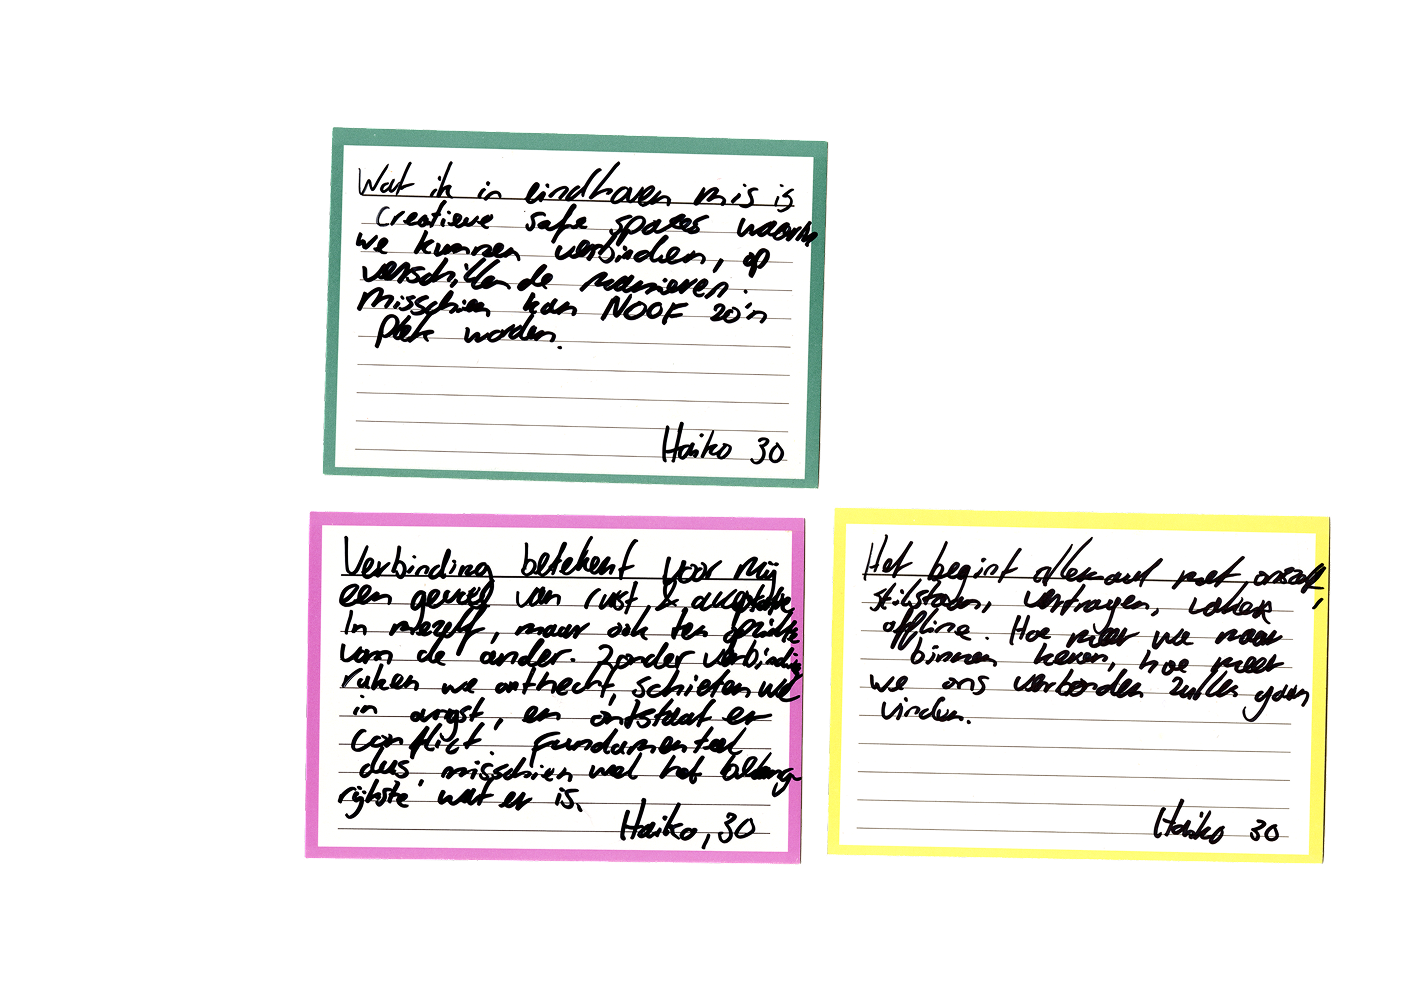 Wat ik in eindhoven mis is
creatieve safe spaces waarin
we kunnen verbinden, op
verschillende manieren.
Misschien kan NOOF zo'n
plek worden.
Haiko 30
Verbinding betekent voor mij
een gevoel van rust & acceptatie,
In mezelf, maar ook ten opzichte
van de ander. Zonder verbinding
raken we onthecht, schieten we
in angst, en ontstaat er
conflict. Fundamenteel
dus, misschien wel het belang-
rijkste wat er is.
Haiko, 30
Het begint allemaal met onszelf,
stilstaan, vertragen, vaker
offline. Hoe meer we naar
binnen keren, hoe meer
we ons verbonden zullen gaan
vinden.
Haiko 30